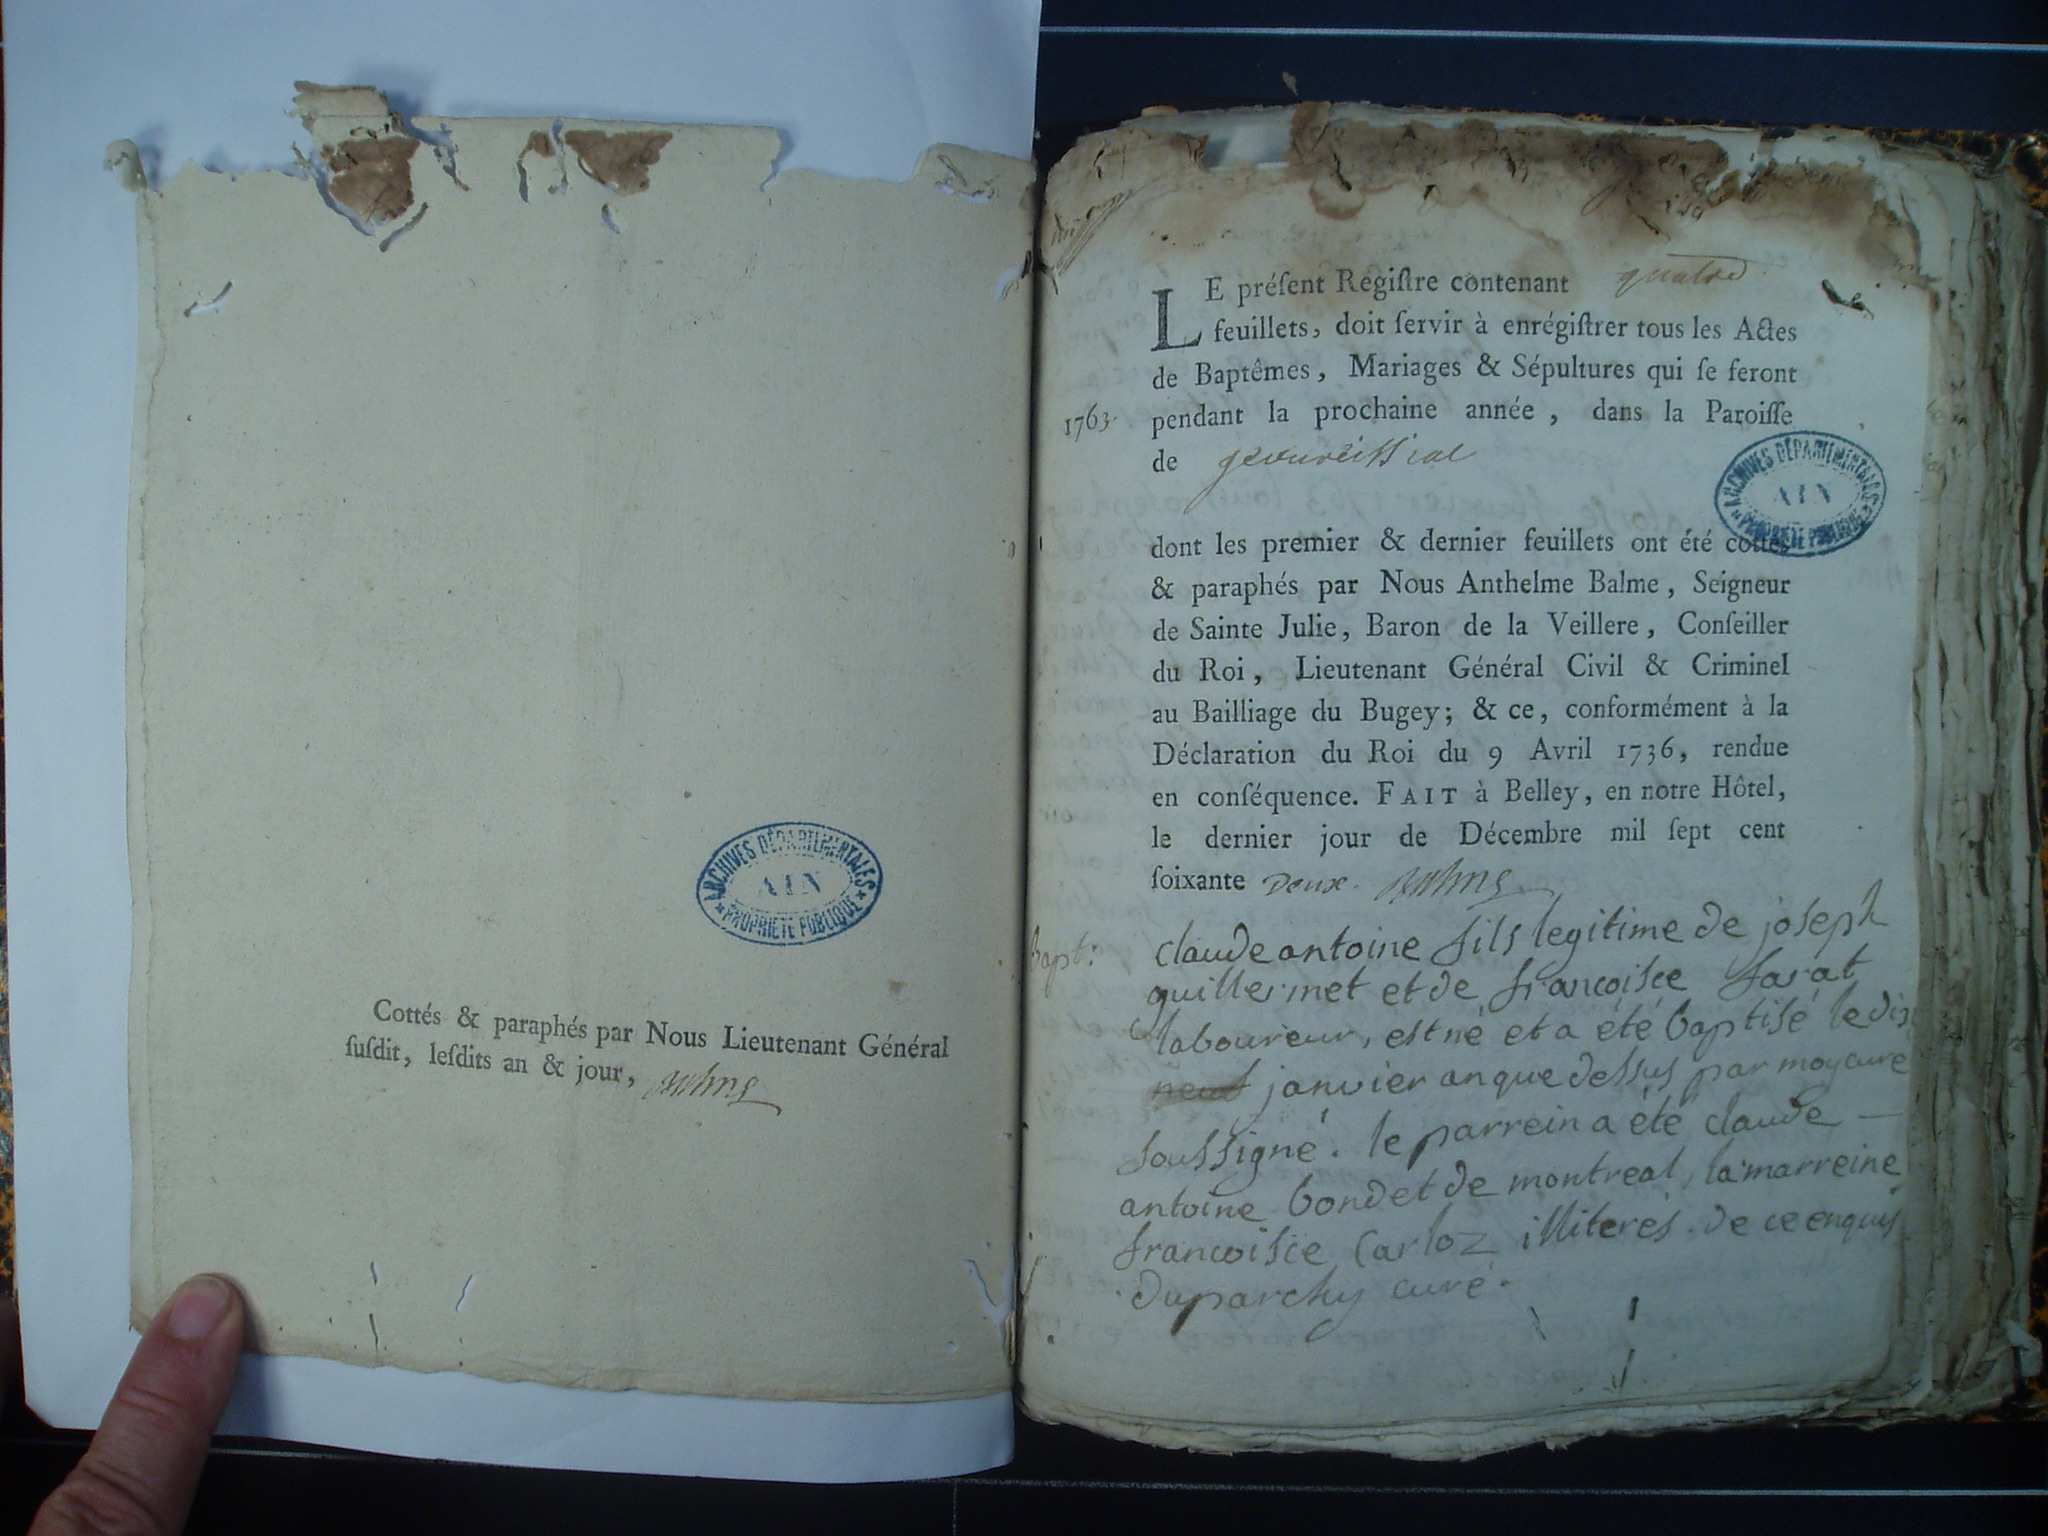 Cottés & paraphés par Nous Lieutenant Général
ſuſdit, leſdits an & jour,
ARCHIVES DÉPARTEMENTALES
AIN
PROPRIÉTÉ PUBLIQUE
LE préſent Regiſtre contenant quatre
feuillets, doit ſervir à enrégiſtrer tous les Actes
de Baptêmes, Mariages & Sépultures qui ſe feront
1763. pendant la prochaine année, dans la Paroiſſe
de geovreissiat
ARCHIVES DÉPARTEMENTALES
AIN
PROPRIÉTÉ PUBLIQUE
dont les premier & dernier feuillets ont été cottés
& paraphés par Nous Anthelme Balme, Seigneur
de Sainte Julie, Baron de la Veillere, Conſeiller
du Roi, Lieutenant Général Civil & Criminel
au Bailliage du Bugey; & ce, conformément à la
Déclaration du Roi du 9 Avril 1736, rendue
en conſéquence. FAIT à Belley, en notre Hôtel,
le dernier jour de Décembre mil ſept cent
ſoixante Deux.
Bapt: claude antoine fils legitime de joseph
guillermet et de francoisce farat
laboureur, est né et a été baptisé le dix
neuf janvier an que dessus par moy curé
soussigné. le parrein a été claude —
antoine bondet de montreal, la marreine
francoisce Carloz illiterés de ce enquis
Duparchy curé.